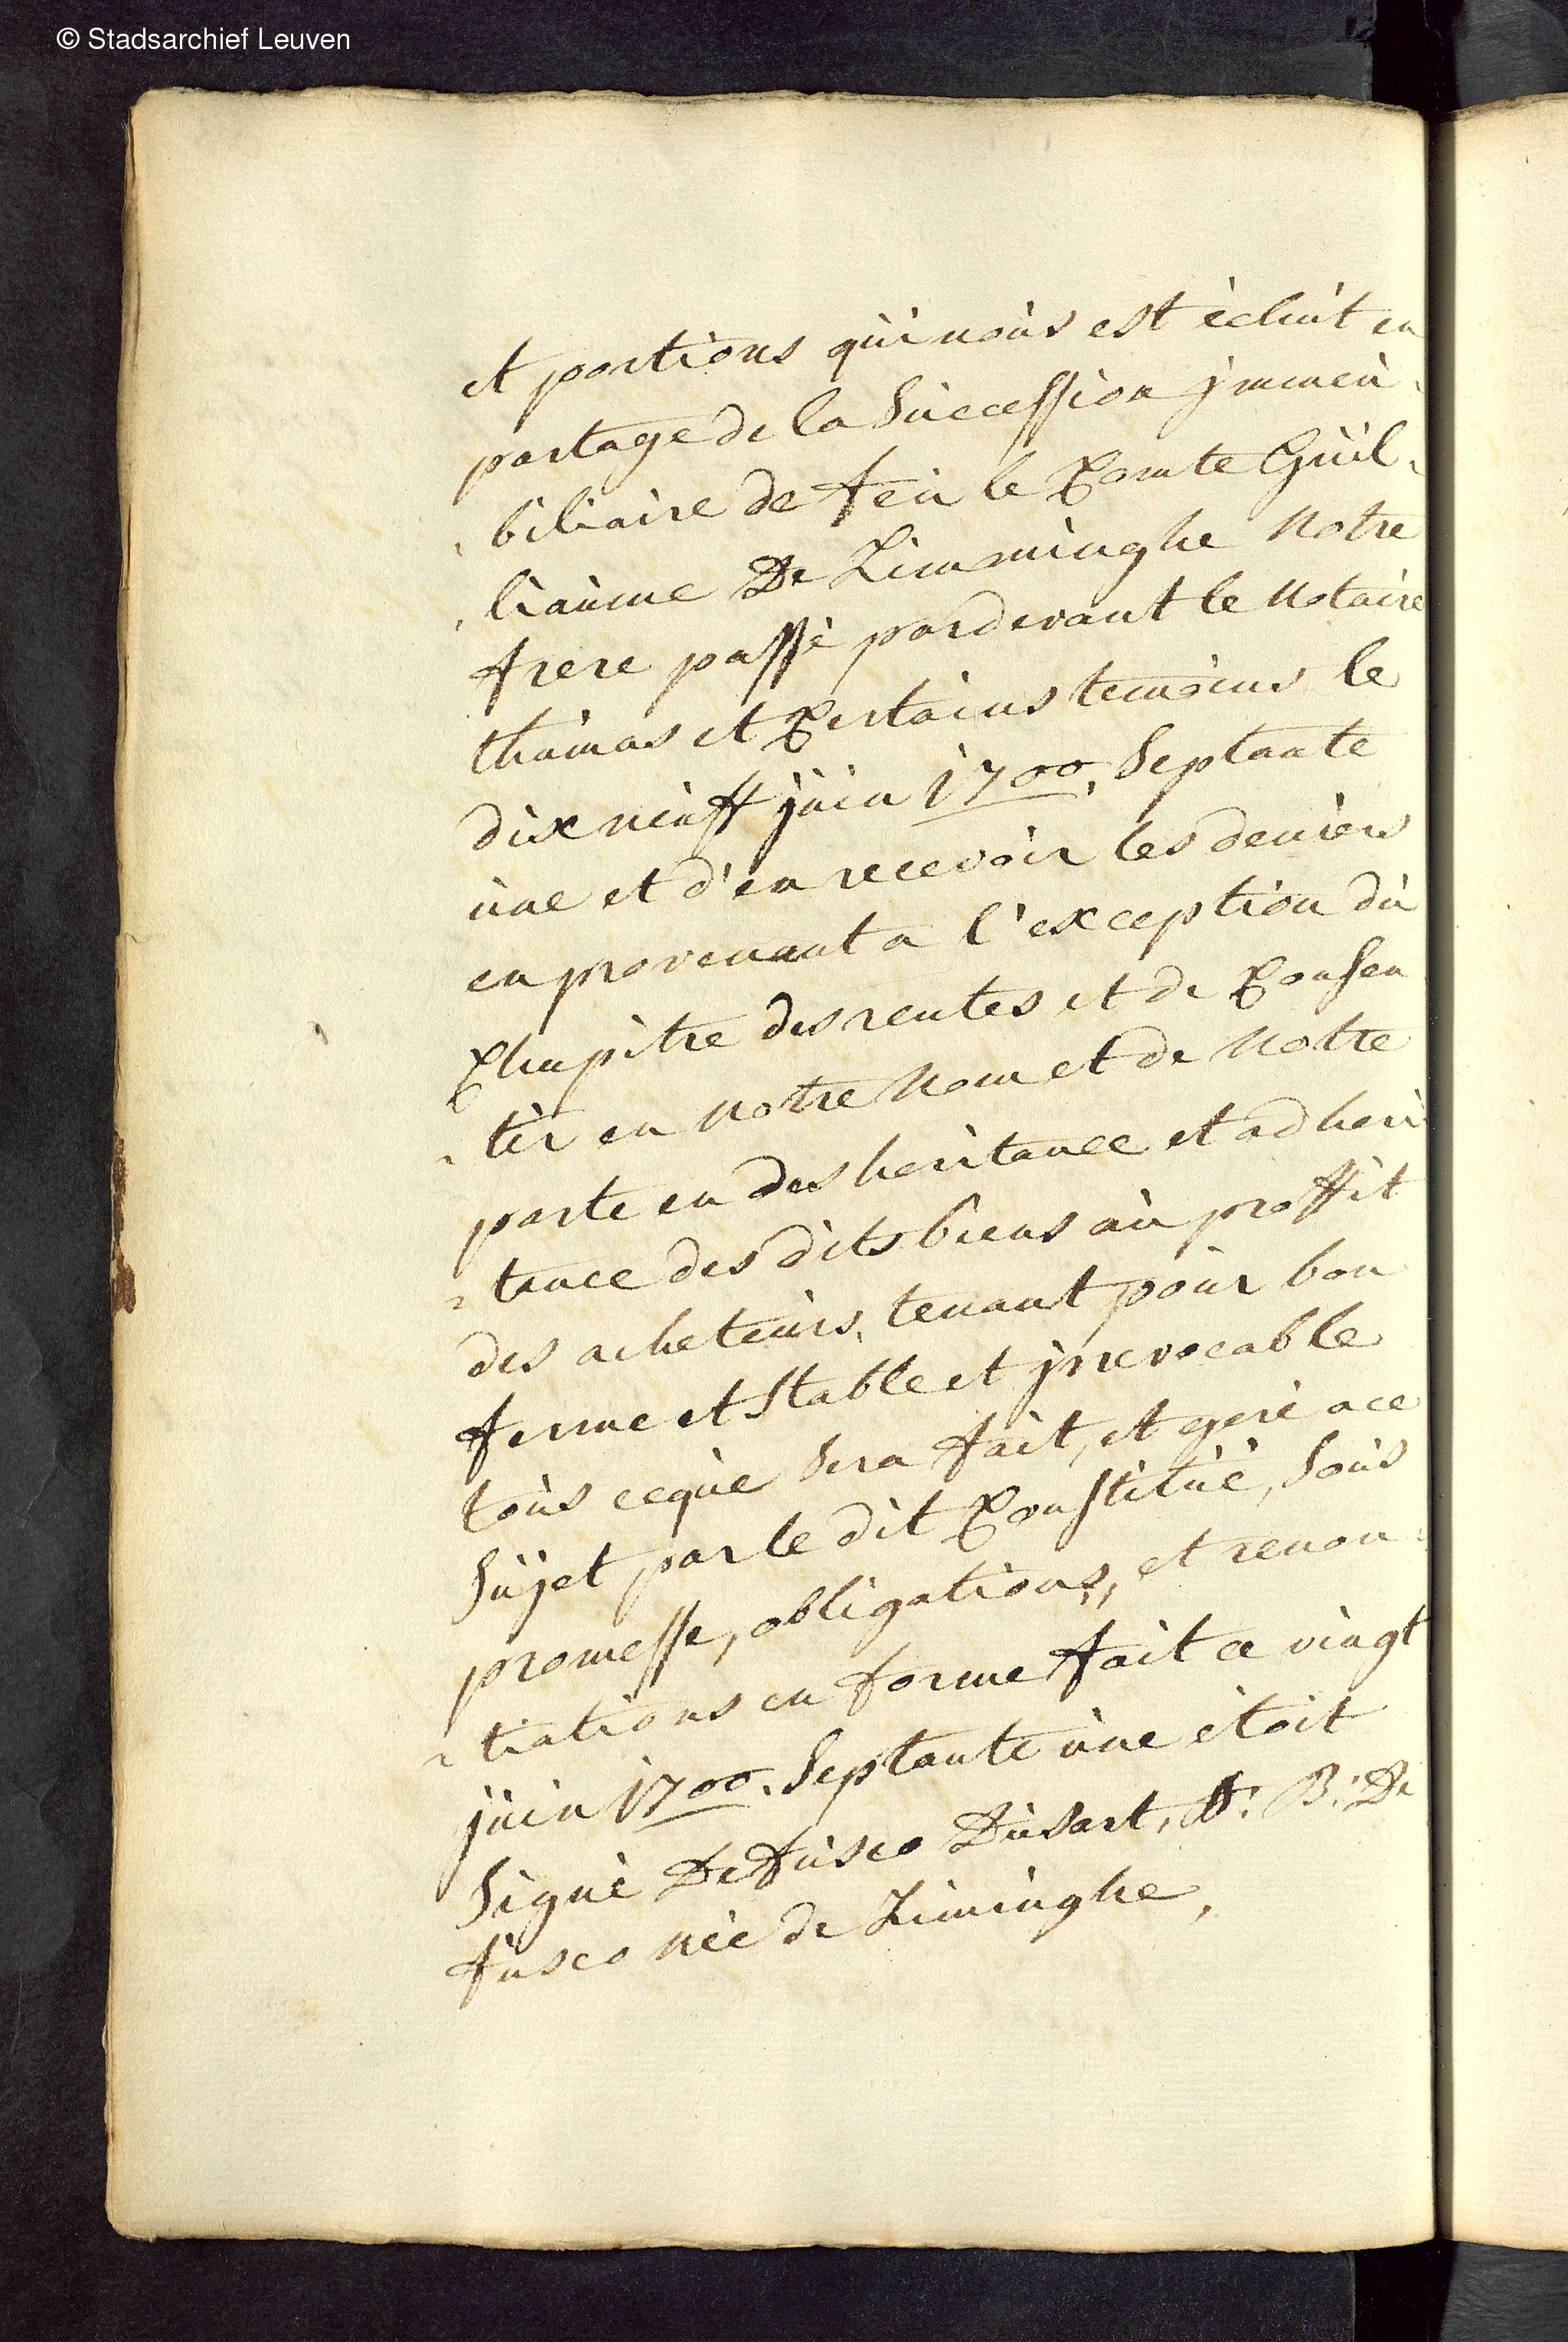 © Stadsarchief Leuven
et portions qui nous est èchut en
partage de la Succession jmmeu-
-biliaire de feu le Comte Guil-
-liaume De Limminghe Notre
frere passè pardevant le Notaire
thomas et Certains temoins le
dix neuff juin 1700. Septante
une et d'en recevoir les deniers
en provenant a l'exception du
Chapitre des rentes et de Consen
-tir en Notre Nom et de Notre
parte en desheritance et adheri
-tance des dits biens au proffit
des acheteurs, tenant pour bon
ferme et Stable et jrrevocable
tous ceque Sera fait, et gerè a ce
Sujet par le dit Constituè, Sous
promesse, obligations, et renon-
-tiations en forme fait ce vingt
juin 1700. Septante une ètoit
Signè De Fusco Dusart, B: De
fusco nèe de Liminghe,